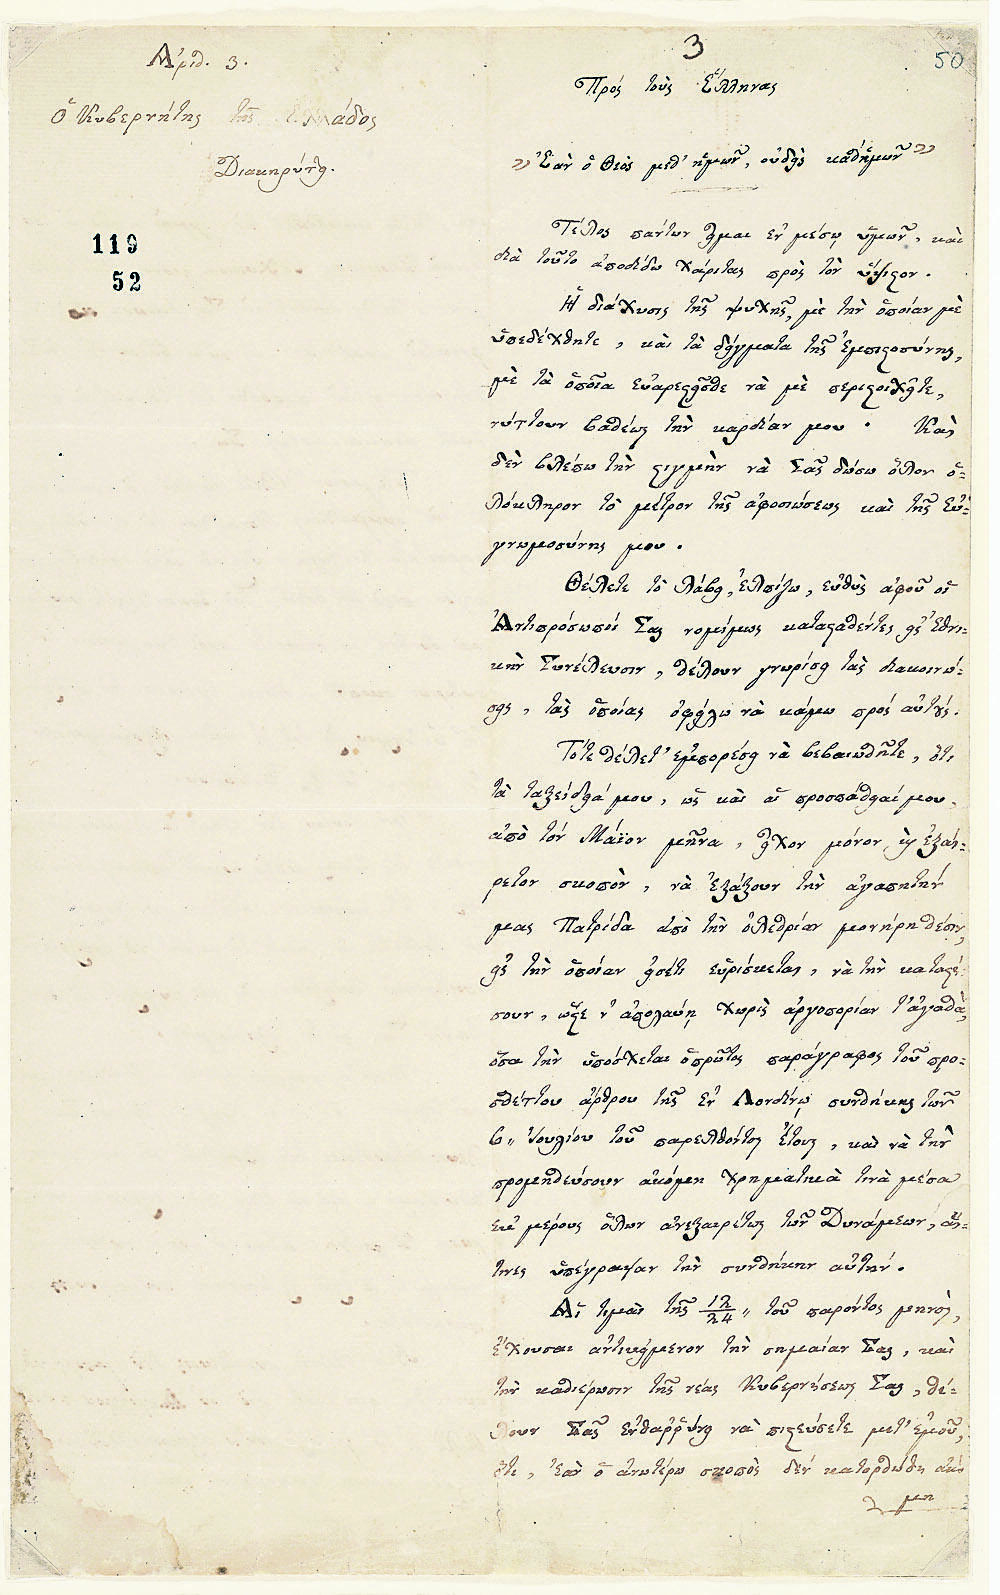 Ἀριθ. 3.
Ὁ Κυβερνήτης τῆς Ἑλλάδος
Διακηρύττει.
119
52
3
50
Πρός τοὺς Ἕλληνας
»Ἐὰν ὁ Θεὸς μεθ' ἡμῶν, οὐδεὶς καθ' ἡμῶν»
Τέλος πάντων εἶμαι ἐν μέσῳ ὑμῶν, καὶ
διὰ τοῦτο ἀποδίδω χάριτας πρὸς τὸν ὕψιστον.
Ἡ διάχυσις τῆς ψυχῆς, μὲ τὴν ὁποίαν μὲ
ὑπεδέχθητε, καὶ τὰ δείγματα τῆς ἐμπιστοσύνης,
μὲ τὰ ὁποῖα εὐαρεστεῖσθε νὰ μὲ περιστοιχῆτε,
νύττουν βαθέως τὴν καρδίαν μου. Καὶ
δὲν βλέπω τὴν στιγμὴν νὰ Σᾶς δώσω ὅλον ὁ-
λόκληρον τὸ μέτρον τῆς ἀφοσιώσεως καὶ τῆς Εὐ-
γνωμοσύνης μου.
Θέλετε τὸ λάβει, ἐλπίζω, εὐθὺς ἀφοῦ οἱ
Ἀντιπρόσωποί Σας νομίμως κατασταθέντες εἰς Ἐθνι-
κὴν Συνέλευσιν, θέλουν γνωρίσει τὰς διακοινώ-
σεις, τὰς ὁποίας ὀφείλω νὰ κάμω πρός αὐτούς.
Τότε θέλετ' ἐμπορέσει νὰ βεβαιωθῆτε, ὅτι
τὰ ταξείδιά μου, ὡς καὶ αἱ προσπάθειαί μου,
ἀπὸ τόν Μάϊον μῆνα, εἶχον μόνον κ' ἐξαί-
ρετον σκοπὸν, νὰ ἐξάξουν τὴν ἀγαπητήν
μας Πατρίδα ἀπὸ τὴν ὀλεθρίαν μονήρη θέσιν,
εἰς τὴν ὁποίαν εἰσέτι εὑρίσκεται, νὰ τὴν καταστή-
σουν, ὥστε ν' ἀπολαύῃ χωρὶς ἀργοπορίαν τ' ἀγαθὰ,
ὅσα τὴν ὑπόσχεται ὁ πρῶτος παράγραφος τοῦ προ-
σθέττου ἄρθρου τῆς ἐν Λονδίνῳ συνθήκης τῶν
6" Ἰουλίου τοῦ παρελθόντος ἔτους, καὶ νὰ τὴν
προμηθεύσουν ἀκόμη χρηματικὰ τινὰ μέσα
ἐκ μέρους ὅλων ἀνεξαιρέτως τῶν Δυνάμεων, αἵ-
τινες ὑπέγραψαν τὴν συνθήκην αὐτήν.
Αἱ τιμαὶ τῆς 12/24" τοῦ παρόντος μηνὸς,
ἔχουσαι ἀντικείμενον τὴν σημαίαν Σας, καὶ
τὴν καθιέρωσιν τῆς νέας Κυβερνήσεως Σας, θέ-
λουν Σᾶς ἐνθαρρύνει νὰ πιστεύσετε μετ' ἐμοῦ,
ὅτι, ἐὰν ὁ ἀνωτέρω σκοπὸς δέν κατορθώθη ἀκό
μη